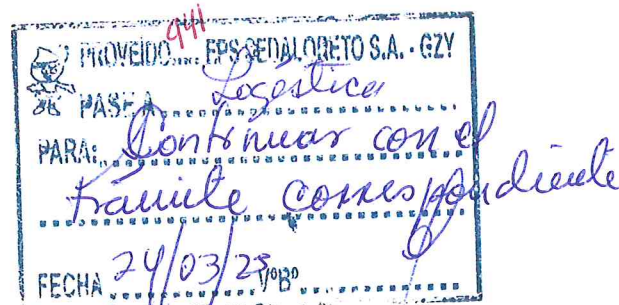 PROVEIDO.... 941 EPS SEDALORETO S.A. - GZY
PASE A Logística
PARA: Continuar con el
trámite correspondiente
FECHA 24/03/23 VºBº